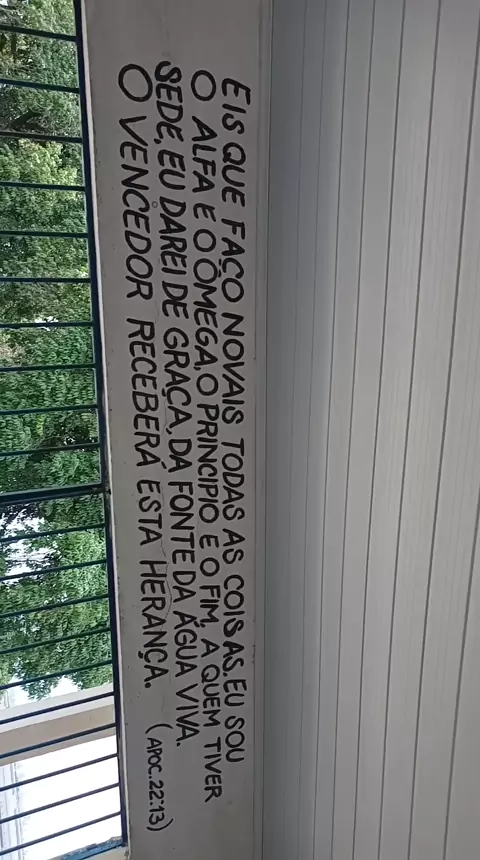 EIS QUE FAÇO NOVAIS TODAS AS COISAS. EU SOU
O ALFA E O ÔMEGA, O PRINCIPIO E O FIM, A QUEM TIVER
SEDE, EU DAREI DE GRAÇA, DA FONTE DA ÁGUA VIVA.
O VENCEDOR RECEBERÁ ESTA HERANÇA. (APOC. 22:13)